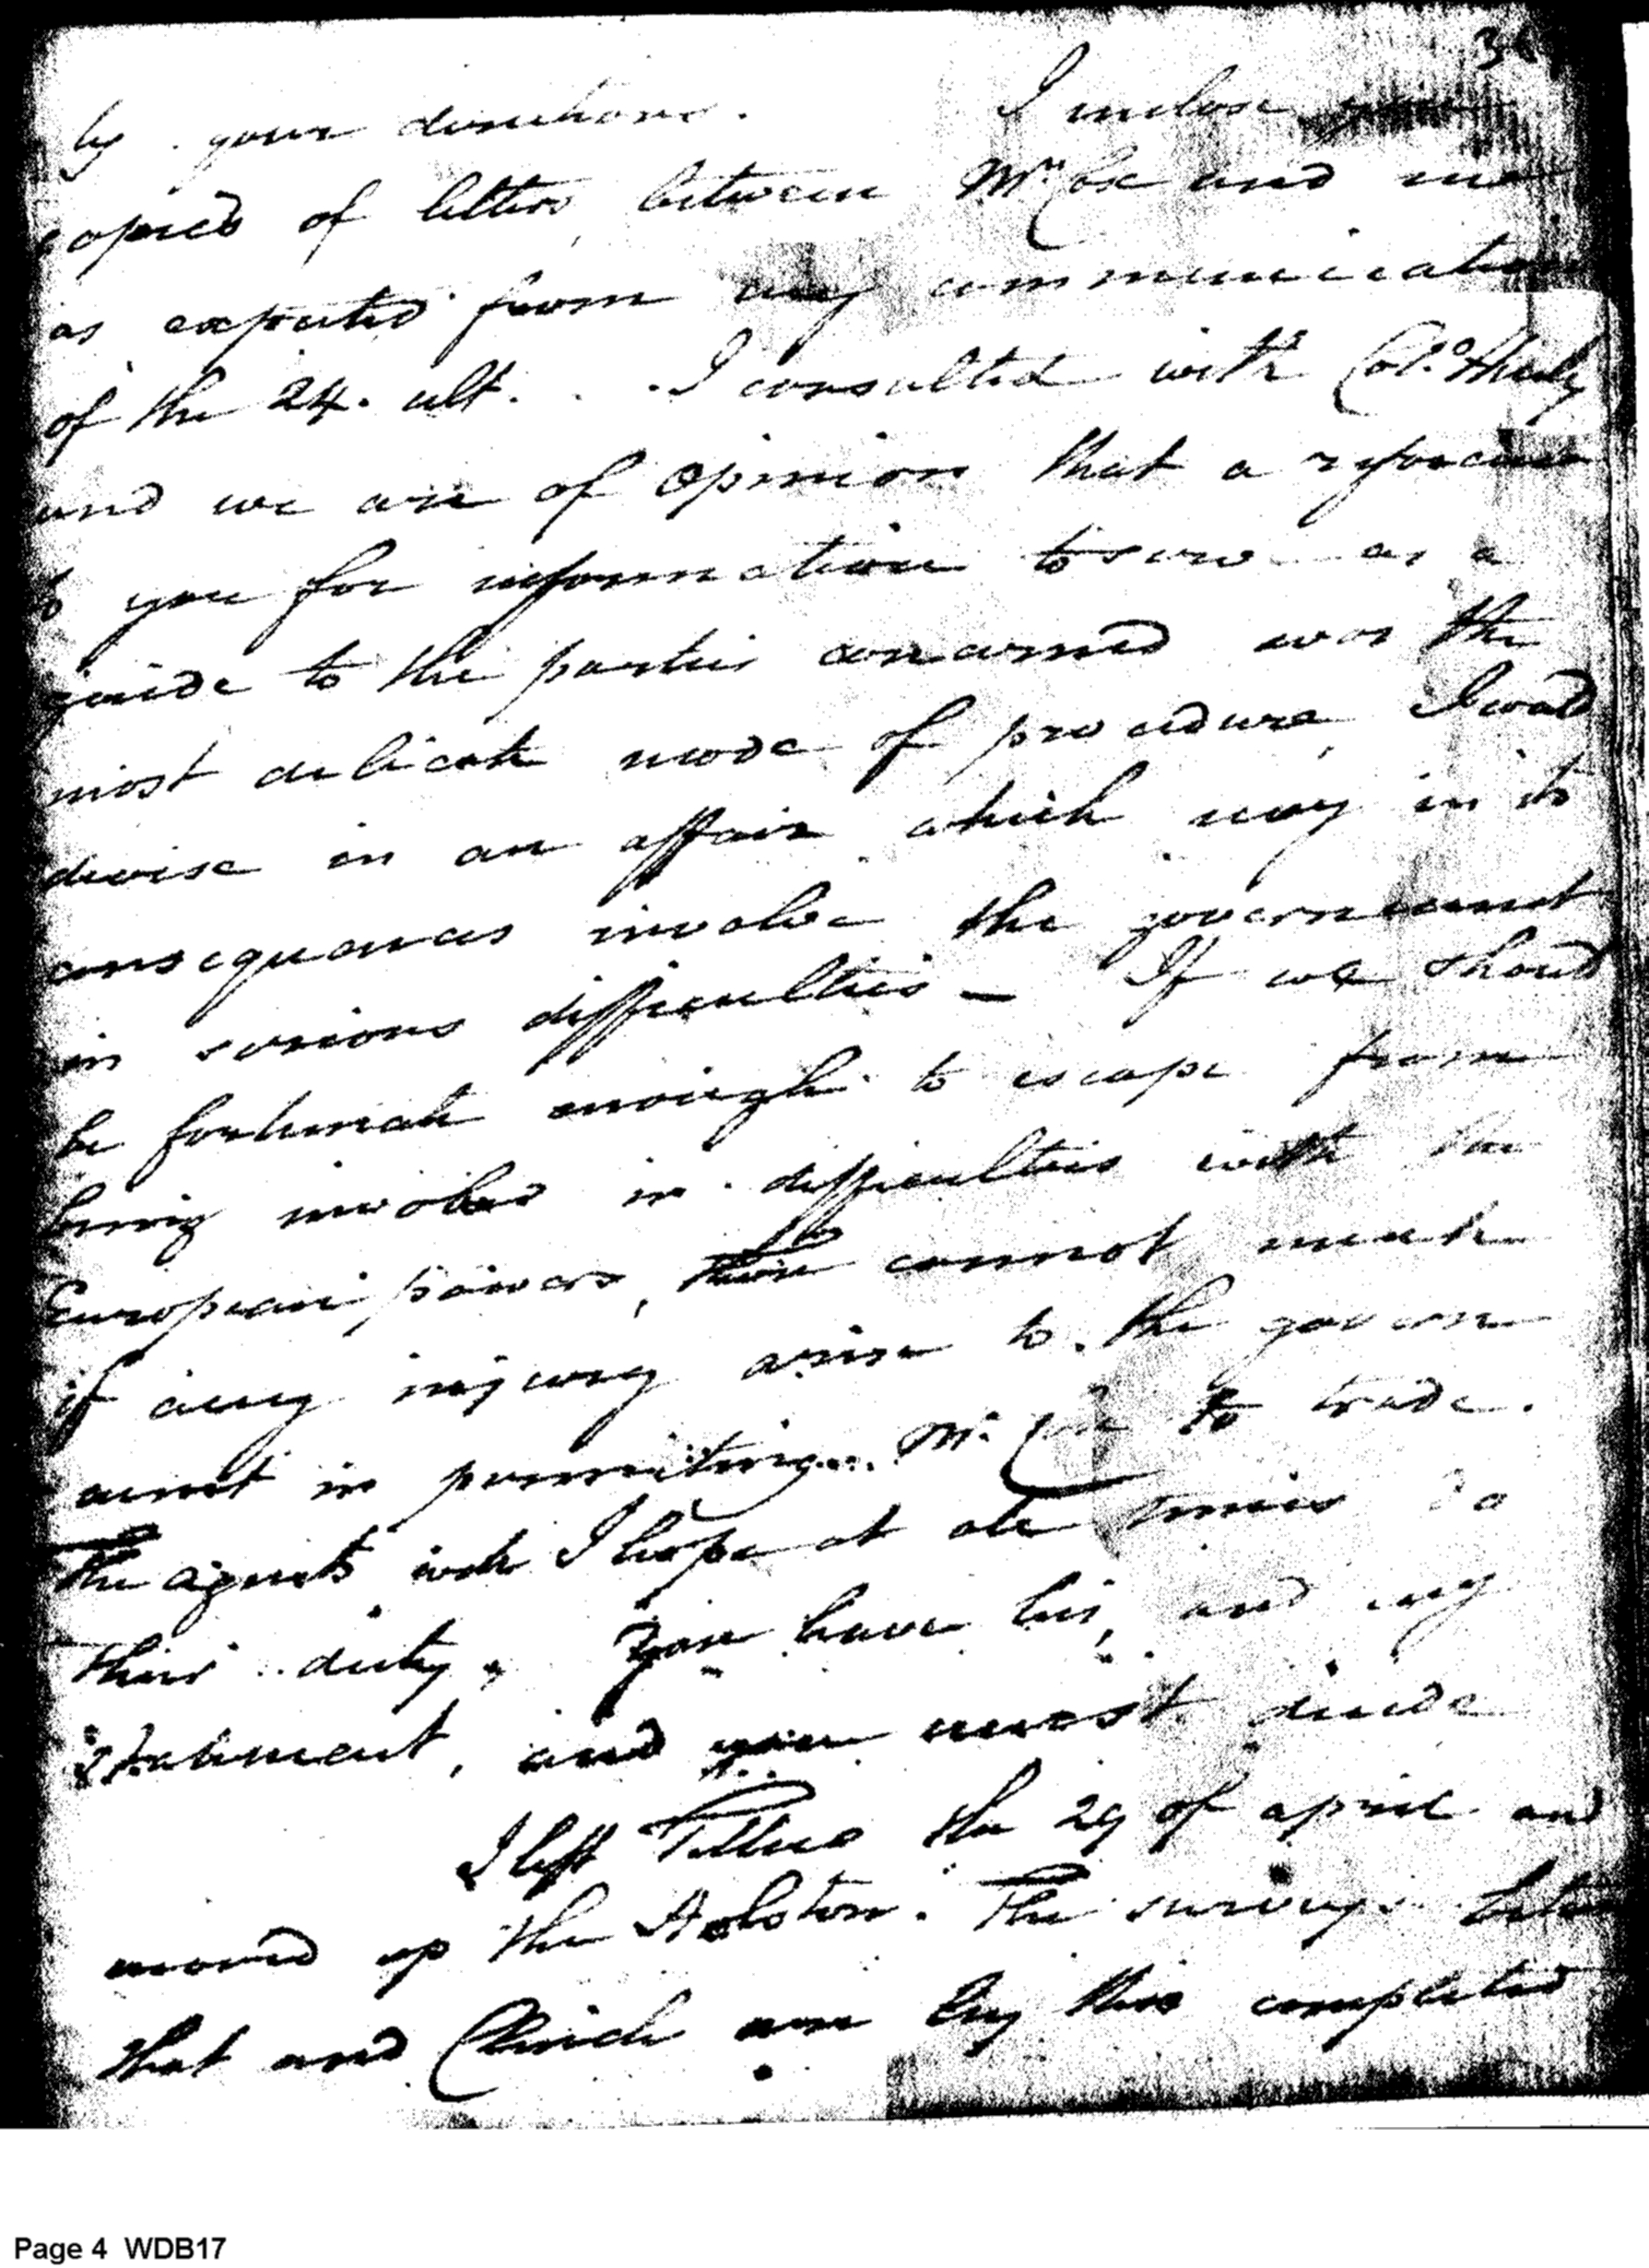 by your directions. I inclose you
copies of letters between Mr. Cox and me
as expected from my communication
of the 24. ult. I consulted with Colo. Henley
and we are of opinion that a reference
to you for information to serve as a
guide to the parties concerned was the
most delicate mode of procedure I could
devise in an affair which may in its
consequences involve the government
in serious difficulties — If we should
be fortunate enough to escape from
being involved in difficulties with the
European powers, there cannot much
if any injury arise to the govern
ment in permitting Mr. Cox to trade.
The agents will I hope at all times do
their duty. You have his, and my
statement, and you must decide
I left Tellico the 29 of april and
moved up the Holston. The surveys between
that and Clinch are by this completed
Page 4 WDB17